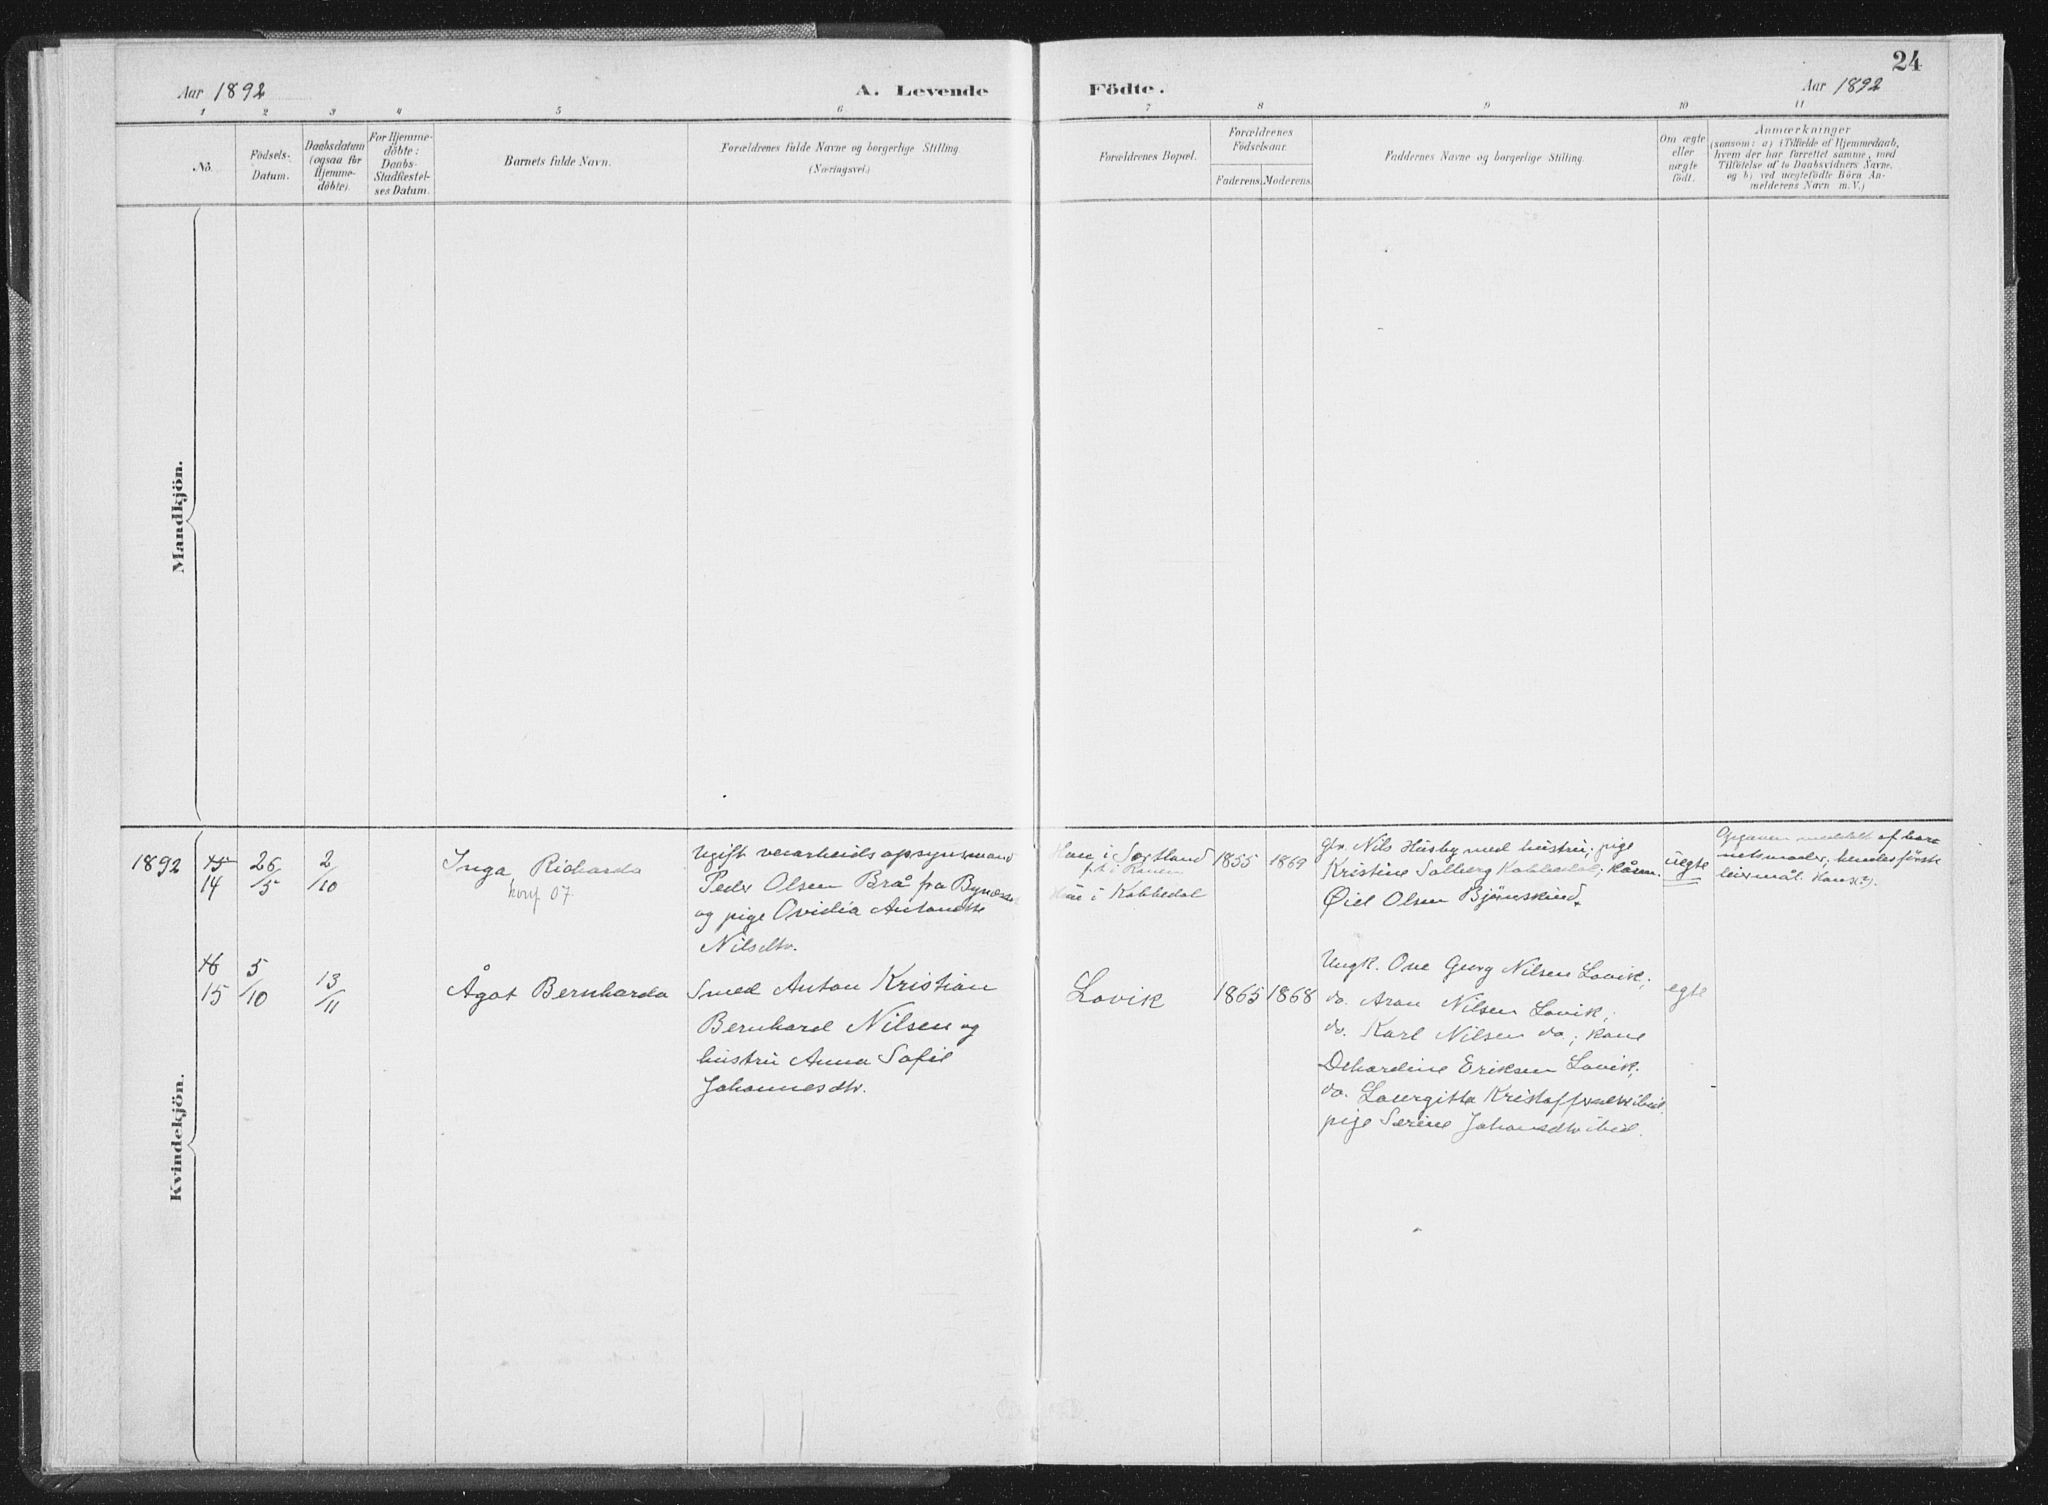 24
Aar 1892
A. Levende Födte.
Aar 1892
1 2 3 4 5 6 7 8 9 10 11
No.
Födsels-
Datum.
Daabsdatum
(ogsaa for
Hjemme-
döbte).
For Hjemme-
döbte:
Daabs-
Stadfæstel-
ses Datum.
Barnets fulde Navn.
Forældrenes fulde Navne og borgerlige Stilling.
(Næringsvei.)
Forældrenes Bopæl.
Forældrenes
Födselsaar.
Faderens. Moderens.
Faddernes Navne og borgerlige Stilling.
Om ægte
eller
uægte
födt.
Anmærkninger
(saasom: a) i Tilfælde af Hjemmedaab,
hvem der har forrettet samme, med
Tilföielse af to Daabsvidners Navne,
og b) ved uægtefödte Börn An-
melderens Navn m. V.)
Mandkjön.
Kvindekjön.
1892
15
14
26
/5
2
/10
Inga Richarda
konf 07
Ugift veiarbeidsopsynsmand
Peder Olsen Brå fra Bynæsset
og pige Ovidia Antonette
Nilsdtr.
Han i Sørtland
i Ranen
Hun i Kobbedal
1855
1869
gbr. Nils Husby med hustru; pige
Kristine Solberg Kobbedal;
Olsen Bjørnskind.
uegte
meddelt af bar-
netsmoder; hendes förste
leiermål. Hans(?).
16
15
5
/10
13
/11
Ågot Bernharda
Smed Anton Kristian
Bernhard Nilsen og
hustru Anna Sofie
Johannesdtr.
Lovik
1865
1868
Ungk. Ove Georg Nilsen Lovik;
do. Aron Nilsen Lovik;
do. Karl Nilsen do; kone
Eriksen Lovik;
do. ibid
pige Serine Johansdtr ibid.
egte